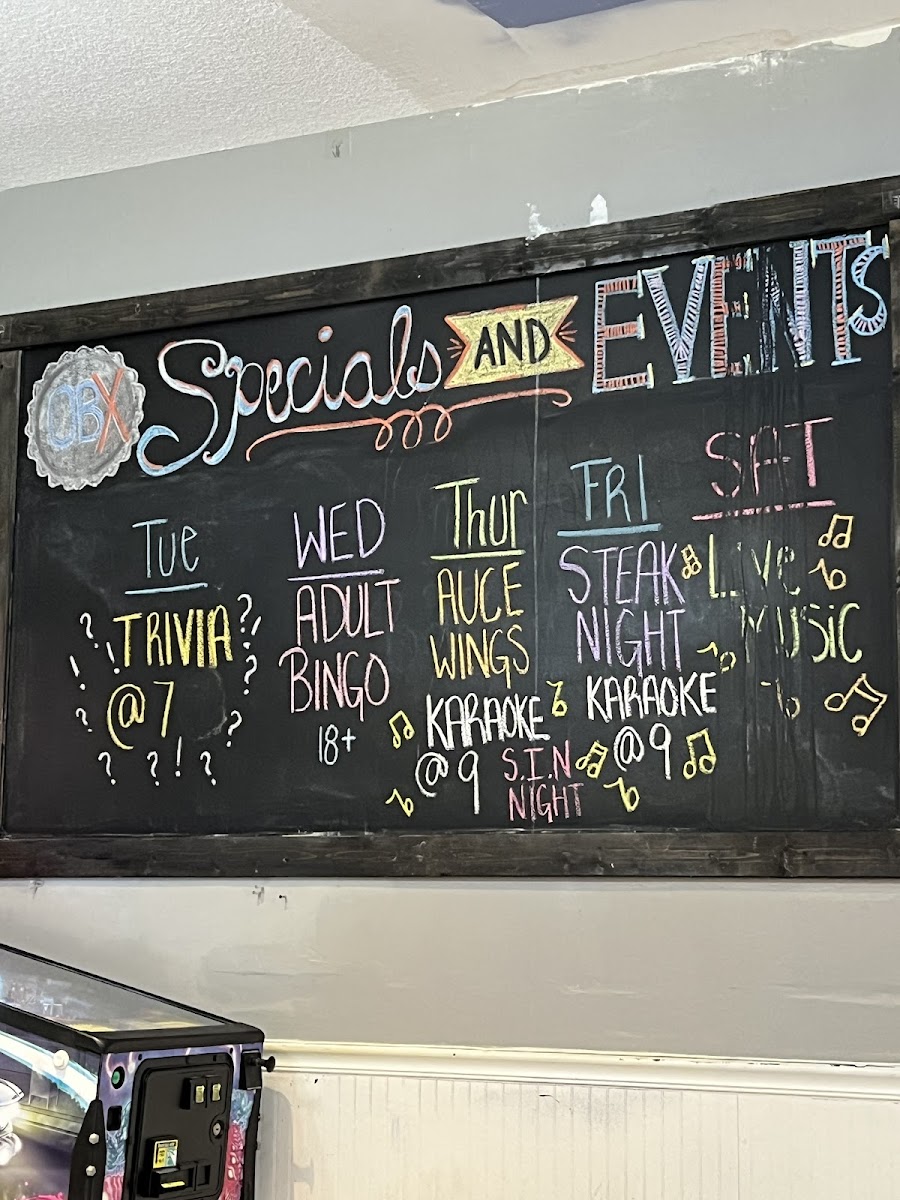 OBX Specials AND EVENTS
Tue
TRIVIA
@7
WED
ADULT
BINGO
18+
Thur
AUCE
WINGS
KARAOKE
@9 S.I.N
NIGHT
FRI
STEAK
NIGHT
KARAOKE
@9
SAT
Live
MUSiC